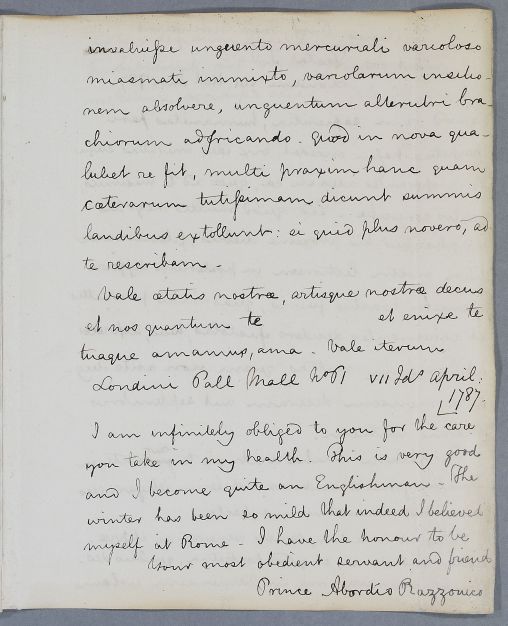 invaluisse unguento mercuriali varioloso
miasmati immixto, variolarum insitio-
nem absolvere, unguentum alterutri bra-
chiorum adfricando. quod in nova qua-
lubet re fit, multi praxim hanc quam
cæterarum tutissimam dicunt summis
laudibus extollunt: si quid plus novero, ad
te rescribam.
Vale ætatis nostræ, artisque nostræ decus
et nos quantum te et enixe te
tuaque amamus, ama. Vale iterum
Londini Pall Mall No 91 VII Ids April:
1787.
I am infinitely obliged to you for the care
you take in my health. This is very good
and I become quite an Englishman. The
winter has been so mild that indeed I believed
myself at Rome - I have the honour to be
Your most obedient servant and friend
Prince Abordio Razzonico